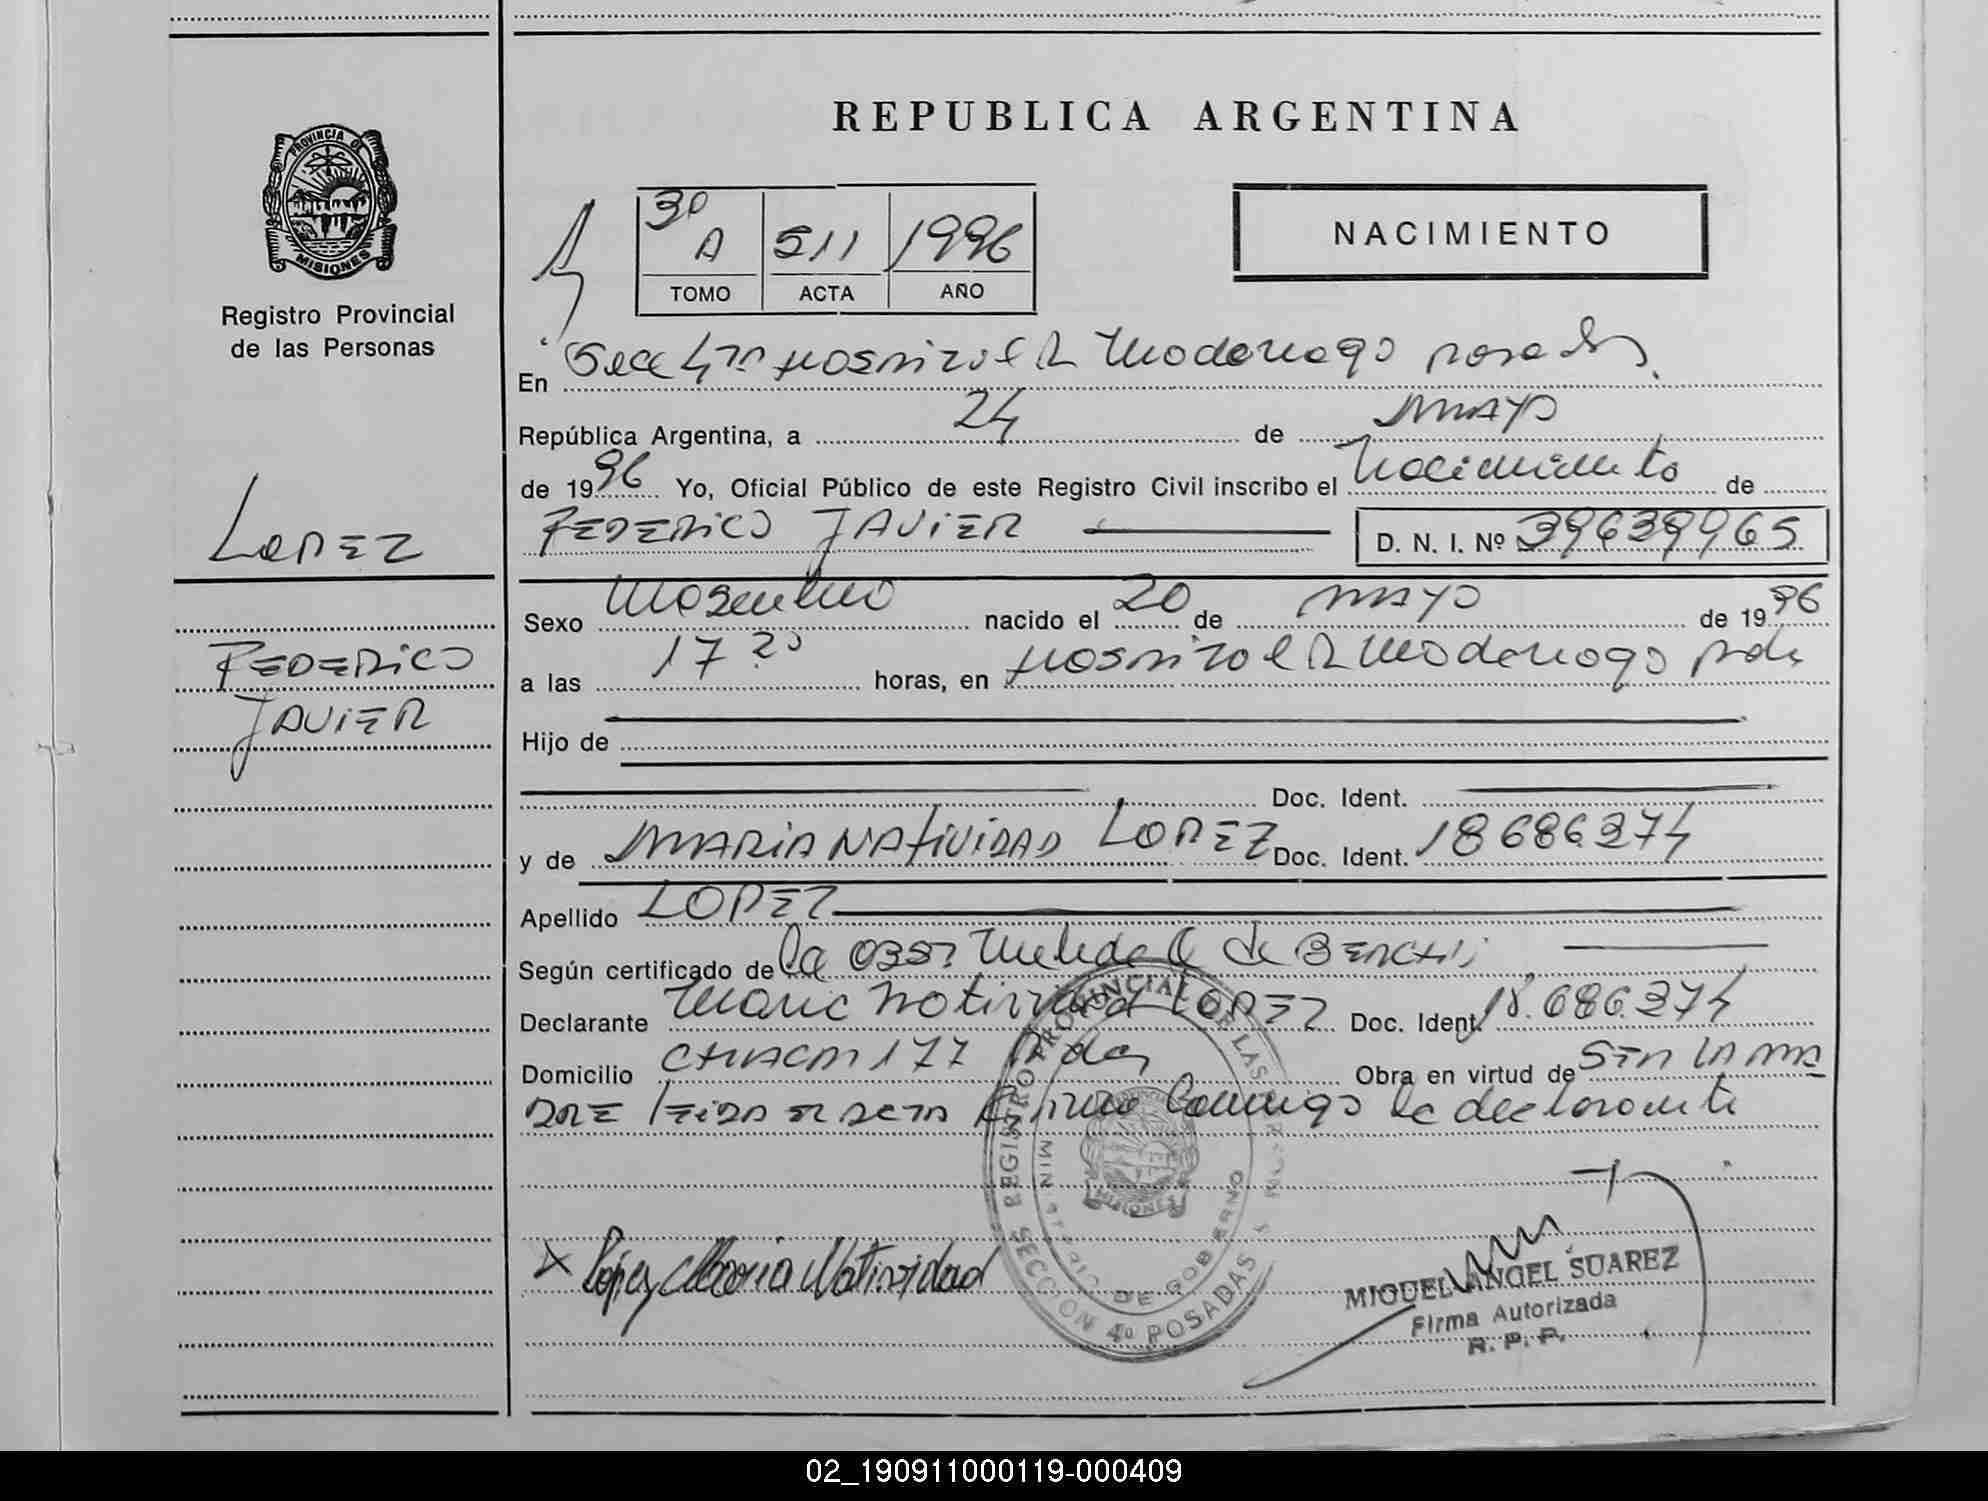 REPUBLICA ARGENTINA
PROVINCIA DE
MISIONES
Registro Provincial
de las Personas
3º A 511 1996
TOMO ACTA AÑO
NACIMIENTO
En Secc 4ta Hospital R Madariaga Posadas
República Argentina, a 24 de MAYO
de 1996 Yo, Oficial Público de este Registro Civil inscribo el Nacimiento de
FEDERICO JAVIER D. N. I. Nº 39639965
LOPEZ
FEDERICO
JAVIER
Sexo Masculino nacido el 20 de MAYO de 1996
a las 17 20 horas, en Hospital R Madariaga Pdas
Hijo de
Doc. Ident.
y de MARIA NATIVIDAD LOPEZ Doc. Ident. 18686374
Apellido LOPEZ
Según certificado de la obst de
Declarante Maria Natividad LOPEZ Doc. Ident. 18.686.374
Domicilio CHACRA 177 Pdas Obra en virtud de SER LA MA
DRE leida el acta firma conmigo la declarante
López Maria Natividad
REGISTRO PROVINCIAL DE LAS PERSONAS
MINISTERIO DE GOBIERNO
MISIONES
SECCION 4ª POSADAS
MIGUEL ANGEL SUAREZ
Firma Autorizada
R. P. P.
02_190911000119-000409